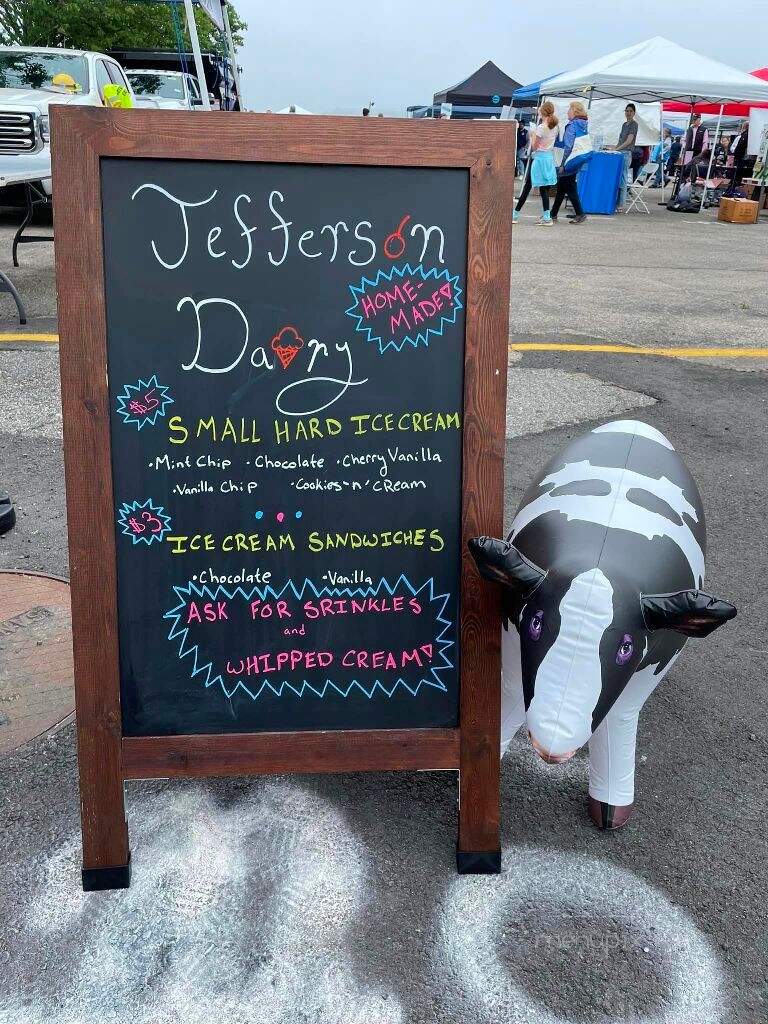 Jefferson
HOME-
MADE!
Dairy
$5
SMALL HARD ICECREAM
•Mint Chip •Chocolate •Cherry Vanilla
•Vanilla Chip •Cookies-n'CReam
$3
ICE CREAM SANDWICHES
•Chocolate •Vanilla
ASK FOR SRINKLES
and
WHIPPED CREAM!
menupix